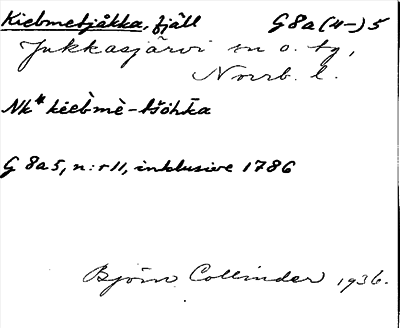 Kiebmetjåkka, fjäll G8a(4-)5
Jukkasjärvi sn o. tg,
Norrb. l.
Nk* kèeb̀mè-tšöhka
G 8a5, n:r 11, inklusive 1786
Björn Collinder 1936.